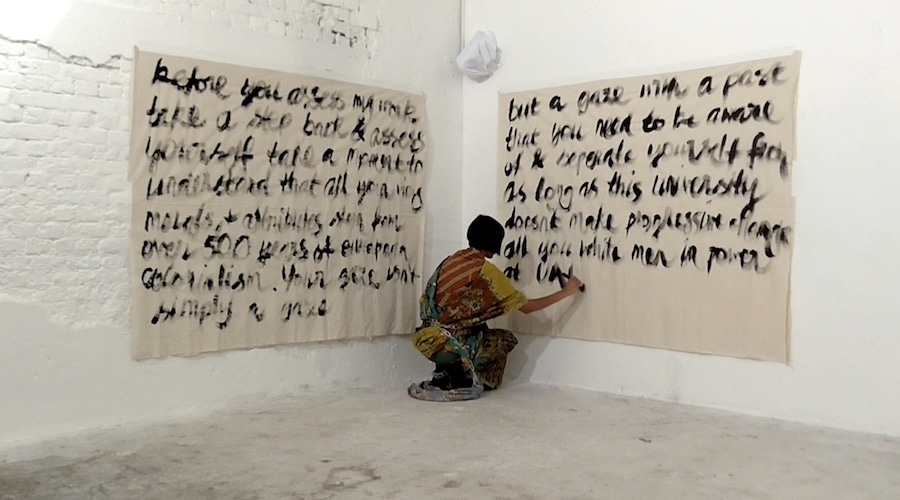 before you assess my work,
take a step back & assess
yourself take a moment to
understand that all your
morals & attributes stem from
over 500 years of european
colonialism. Your gaze isnt
simply a gaze
but a gaze with a past
that you need to be aware
of & separate yourself from
as long as this university
doesn't make progressive change
all you white men in power
at